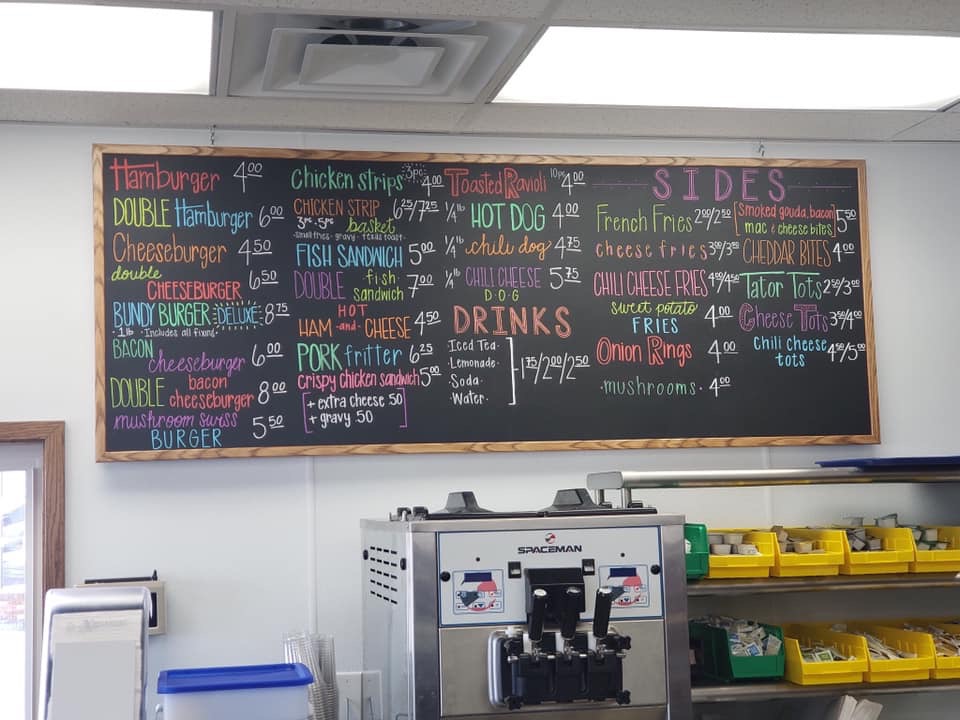 Hamburger 4.00
DOUBLE Hamburger 6.00
Cheeseburger 4.50
double
CHEESEBURGER 6.50
BUNDY BURGER DELUXE 8.75
·1lb·Includes all fixins·
BACON
cheeseburger 6.00
DOUBLE bacon
cheeseburger 8.00
mushroom swiss
BURGER 5.50
Chicken strips 3pc 4.00
CHICKEN STRIP 6.25/7.25
3pc·5pc basket
·small fries·gravy·texas toast·
FISH SANDWICH 5.00
DOUBLE fish
sandwich 7.00
HOT
HAM -and- CHEESE 4.50
PORK fritter 6.25
crispy chicken sandwich 5.00
+ extra cheese 50
+ gravy 50
Toasted Ravioli 10pc 4.00
1/4 lb HOT DOG 4.00
1/4 lb chili dog 4.75
1/4 lb CHILI CHEESE 5.75
DOG
DRINKS
Iced Tea·
·Lemonade·
·Soda·
·Water·
1.75/2.00/2.50
SIDES
French Fries 2.00/2.50
cheese fries 3.00/3.50
CHILI CHEESE FRIES 4.00/4.50
sweet potato
FRIES 4.00
Onion Rings 4.00
·mushrooms· 4.00
[Smoked gouda, bacon
mac & cheese bites] 5.50
CHEDDAR BITES 4.00
Tator Tots 2.50/3.00
Cheese Tots 3.50/4.00
Chili cheese
tots 4.50/5.00
SPACEMAN